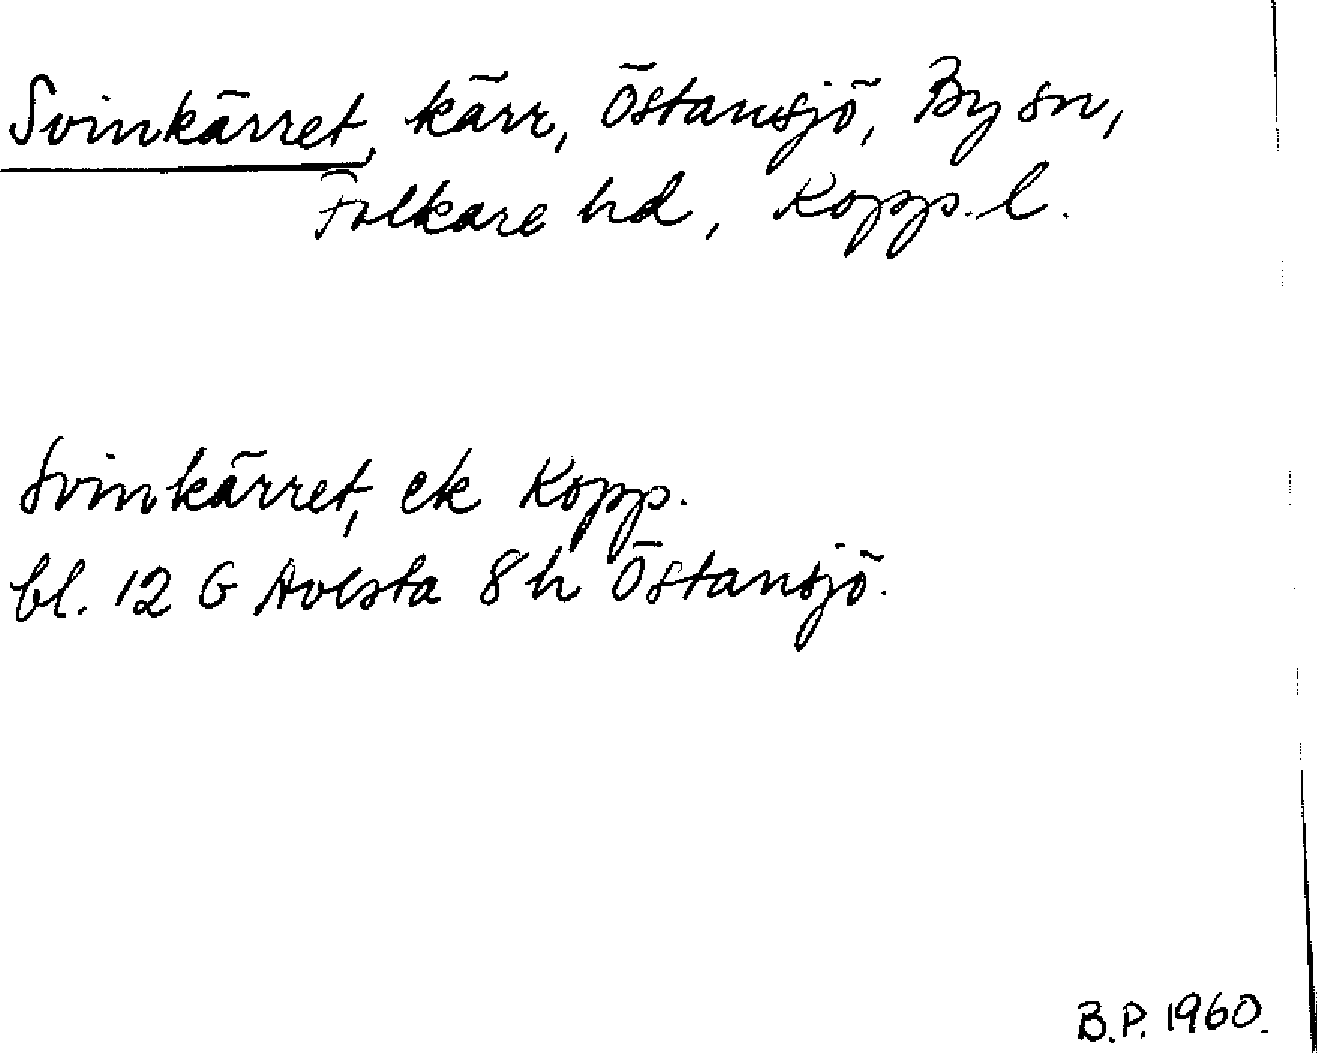 Svinkärret, kärr, Östansjö, By sn,
Folkare hd, Kopp. l.
Svinkärret, ek Kopp.
bl. 12 G Avesta 8h Östansjö.
B.P. 1960.